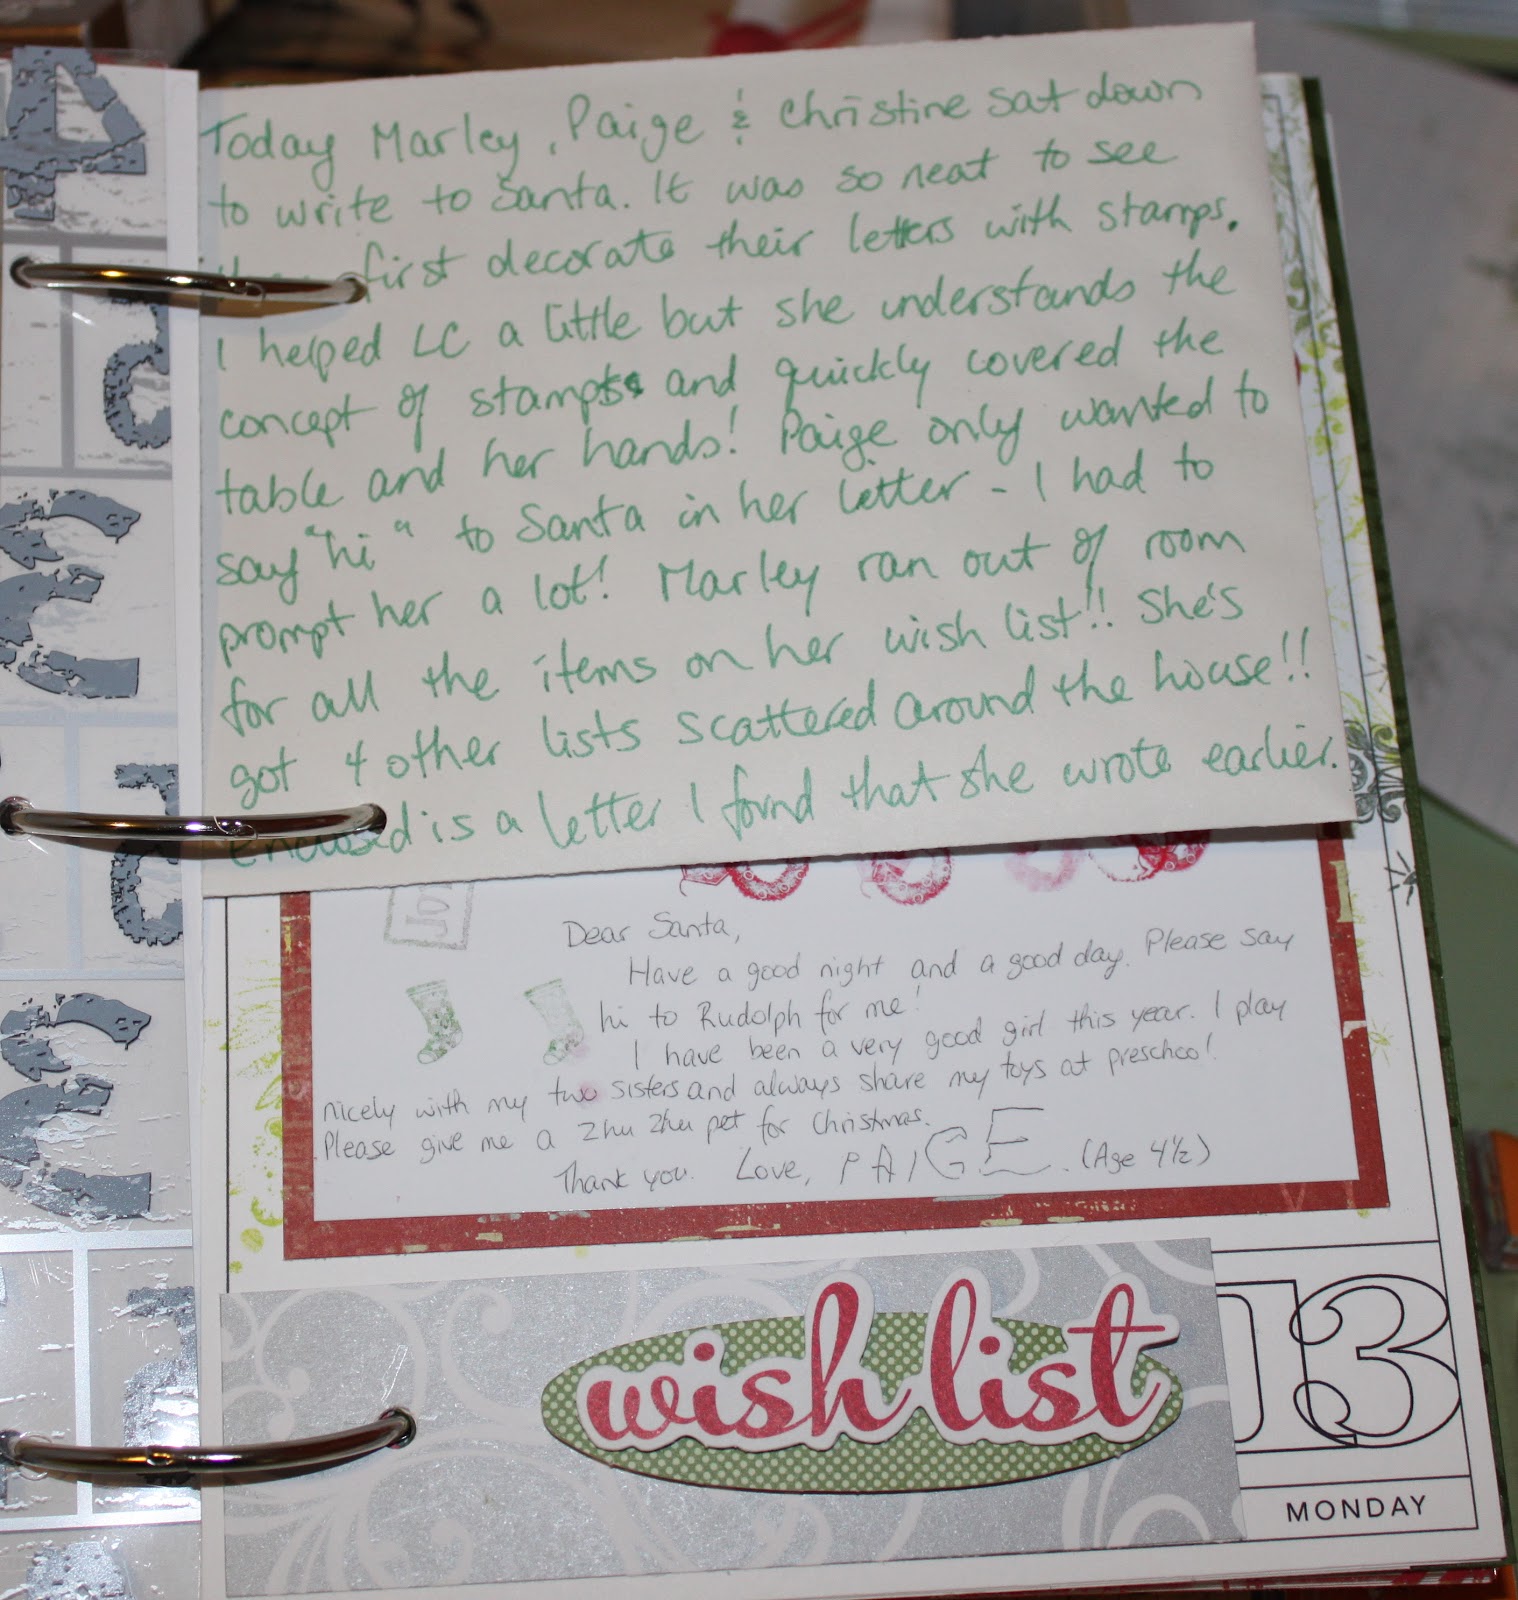 Today Marley, Paige & Christine sat down
to write to Santa. It was so neat to see
first decorate their letters with stamps.
I helped LC a little but she understands the
concept of stamps and quickly covered the
table and her hands! Paige only wanted to
say "hi" to Santa in her letter - I had to
prompt her a lot! Marley ran out of room
for all the items on her wish list!! She's
got 4 other lists scattered around the house!!
Enclosed is a letter I found that she wrote earlier.
JOY
Dear Santa,
Have a good night and a good day. Please say
hi to Rudolph for me!
I have been a very good girl this year. I play
nicely with my two sisters and always share my toys at preschool.
Please give me a Zhu Zhu pet for Christmas.
Thank you. Love, PAIGE. (Age 4½)
wish list
13
MONDAY